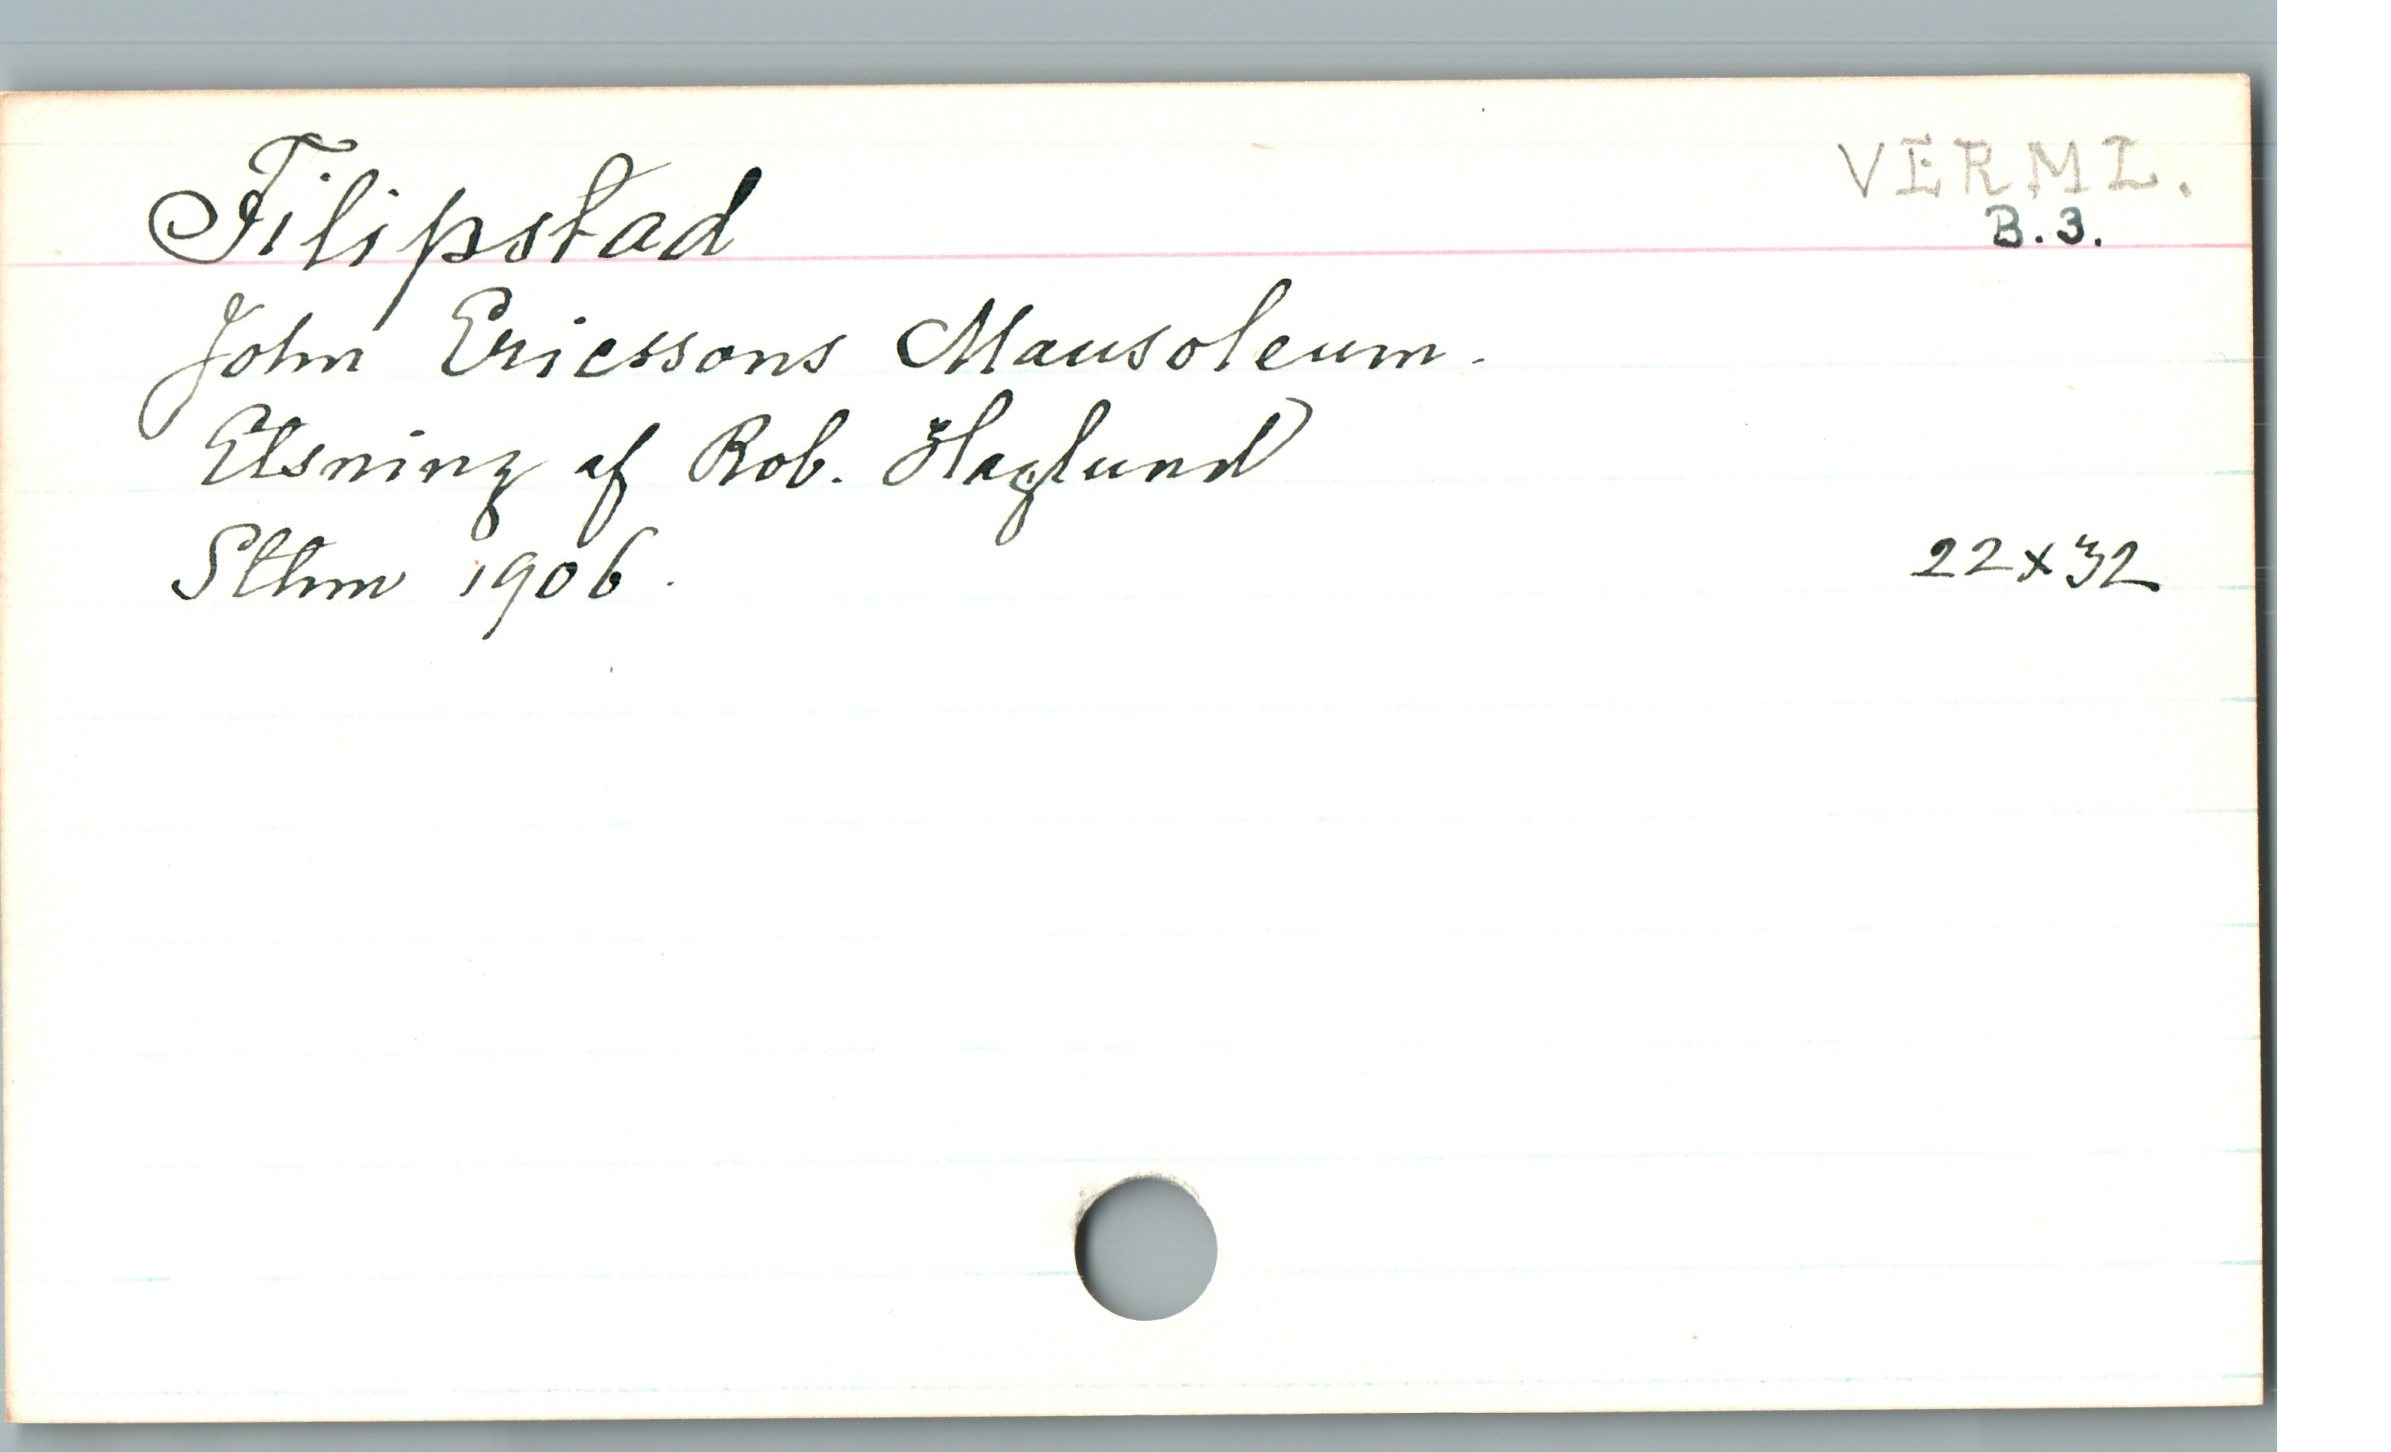 Filipstad
VERML.
B.3.
John Ericssons Mausoleum.
Etsning af Rob. Haglund
Sthm 1906.
22x32